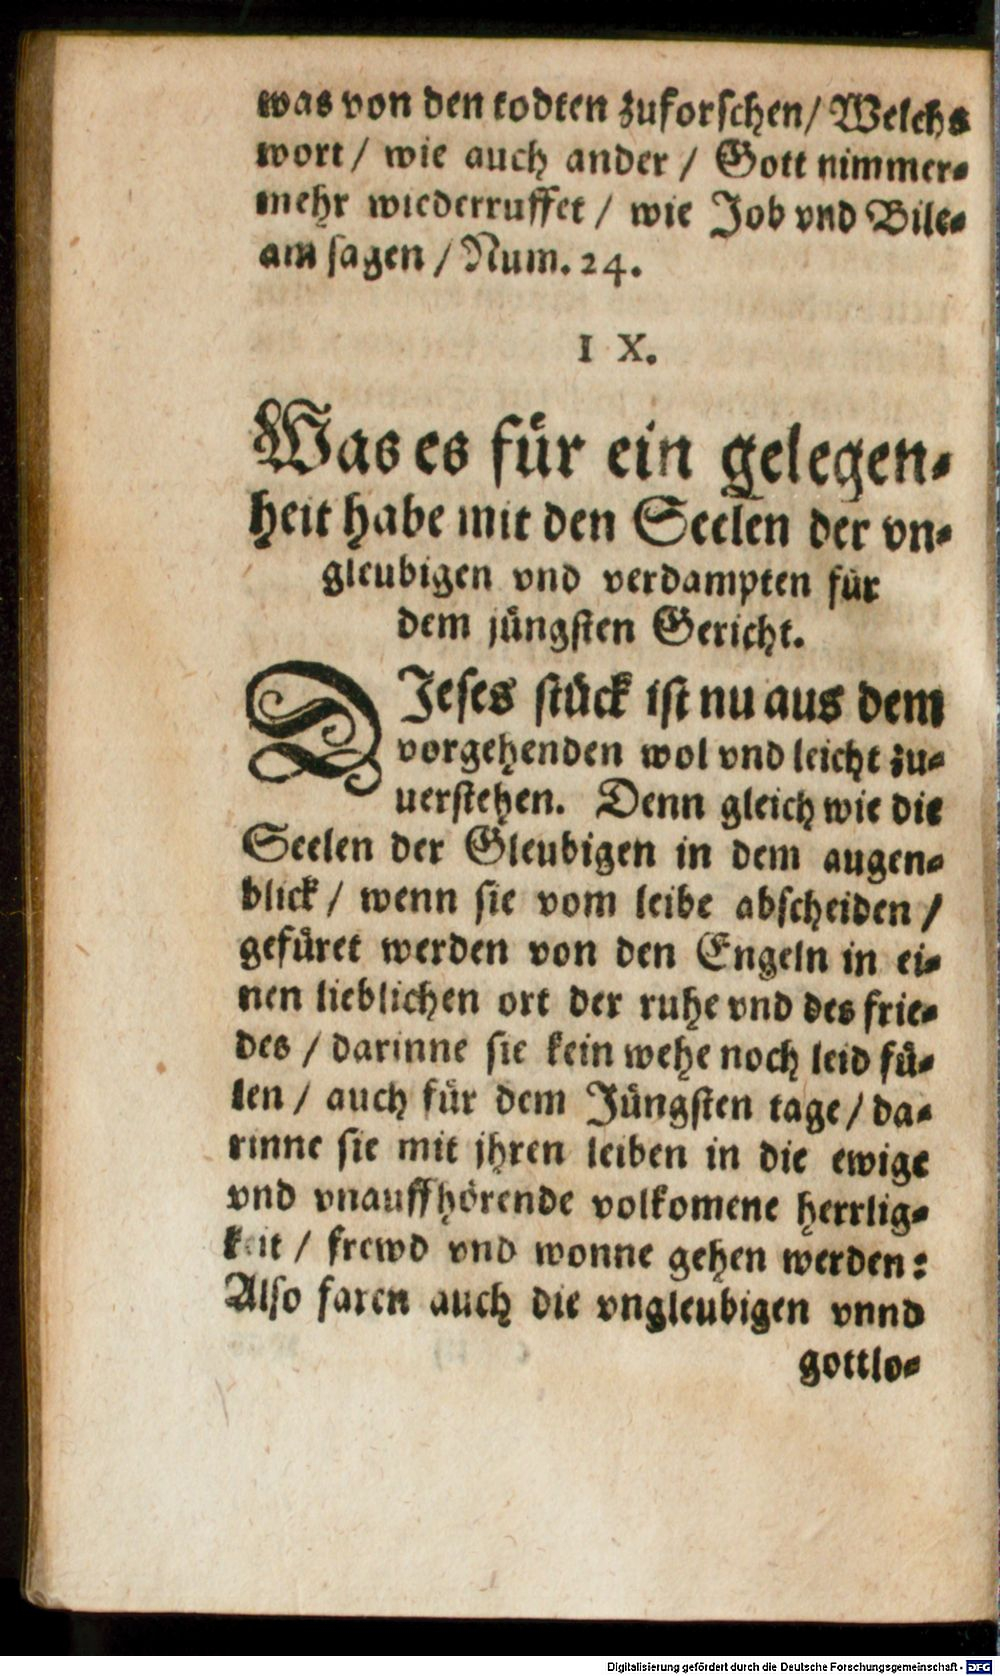 was von den todten zuforschen/ Welchs
wort / wie auch ander / Gott nimmer-
mehr wiederruffet / wie Job vnd Bile-
am sagen / Num. 24.
I X.
Was es für ein gelegen-
heit habe mit den Seelen der vn-
gleubigen vnd verdampten für
dem jüngsten Gericht.
DIeses stück ist nu aus dem
vorgehenden wol vnd leicht zu-
uerstehen. Denn gleich wie die
Seelen der Gleubigen in dem augen-
blick / wenn sie vom leibe abscheiden /
gefüret werden von den Engeln in ei-
nen lieblichen ort der ruhe vnd des frie-
des / darinne sie kein wehe noch leid fü-
len / auch für dem Jüngsten tage / da-
rinne sie mit jhren leiben in die ewige
vnd vnauffhörende volkomene herrlig-
keit / frewd vnd wonne gehen werden:
Also faren auch die vngleubigen vnnd
gottlo-
Digitalisierung gefördert durch die Deutsche Forschungsgemeinschaft - DFG